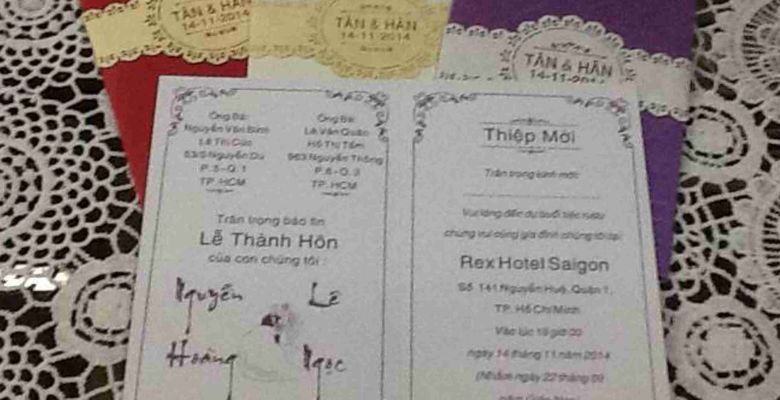 TÂN & HÂN
14-11-2014
TÂN & HÂN
14-11-2014
TÂN & HÂN
14-11-2014
Ông Bà:
Nguyễn Văn Bình
Lê Thị Cúc
53/5 Nguyễn Du
P. 5 - Q. 1
TP. HCM
Ông Bà:
Lê Văn Quân
Hồ Thị Tấm
963 Nguyễn Thông
P. 6 - Q. 3
TP. HCM
Trân trọng báo tin
Lễ Thành Hôn
của con chúng tôi :
Nguyễn
Hoàng
Lê
Ngọc
Thiệp Mời
Trân trọng kính mời:
Vui lòng đến dự buổi tiệc rượu
chung vui cùng gia đình chúng tôi tại
Rex Hotel Saigon
Số 141 Nguyễn Huệ, Quận 1,
TP. Hồ Chí Minh
Vào lúc giờ
ngày 14 tháng 11 năm 2014
(Nhằm ngày 22 tháng 09
năm